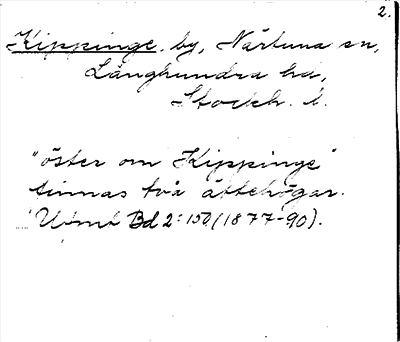 2.
Kippinge, by, Närtuna sn,
Långhundra hd,
Stockh. l.
"öster om Kippinge"
finnas två ättehögar.
Utmt Bd 2:150 (1877-90).